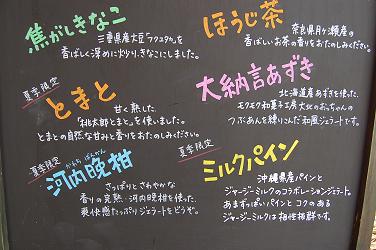 焦がしきなこ
三重県産大豆フクユタカ。を
香ばしく深めに炒り、きなこにしました。
ほうじ茶
奈良県月ヶ瀬産の
香ばしいお茶の香りをおたのしみください。
夏季限定
とまと
甘く熟した、
「桃太郎とまと。」を使いました。
とまとの自然な甘みと香りをおたのしみください。
大納言あずき
北海道産あずきを使った、
モクモク和菓子工房大北のおっちゃんの
つぶあんを練りこんだ和風ジェラートです。
夏季限定
かわちばんかん
河内晩柑
さっぱりとさわやかな
香りの完熟・河内晩柑を使った、
爽快感たっぷりジェラートをどうぞ。
夏季限定
ミルクパイン
沖縄県産パインと
ジャージーミルクのコラボレーションジェラート。
あまずっぱいパインとコクのある
ジャージーミルクは相性抜群です。